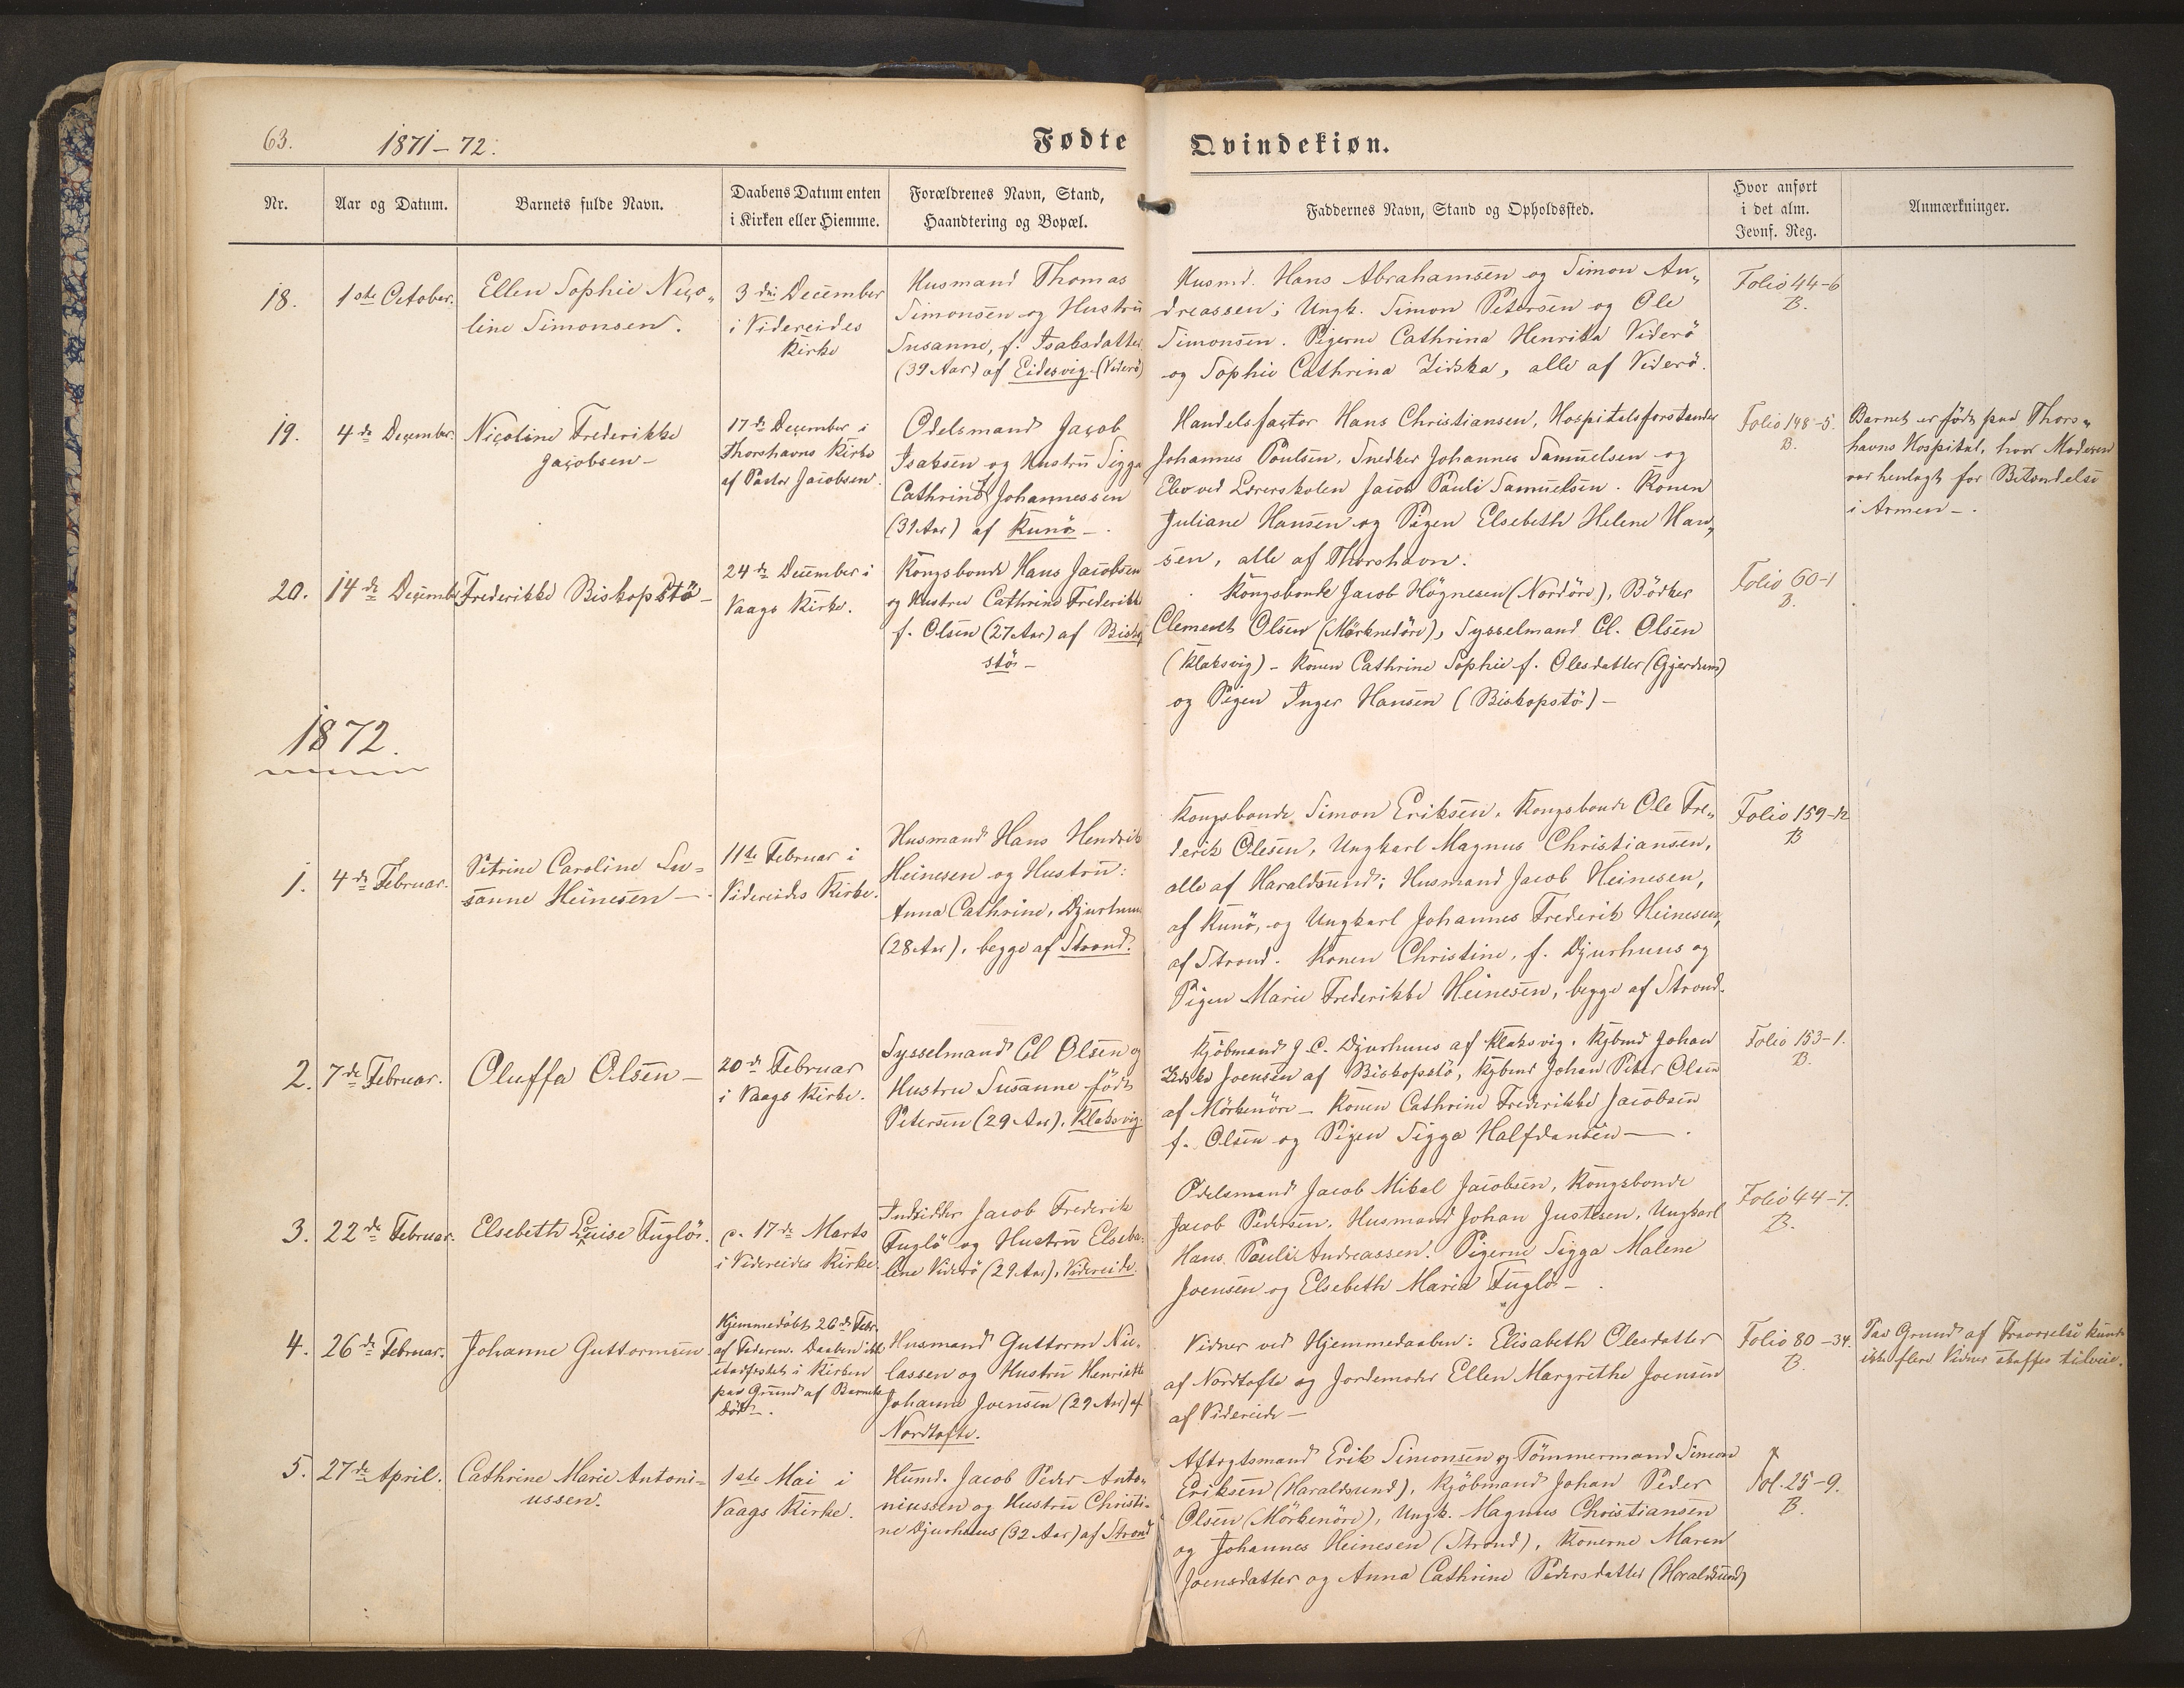 63.
1871-72.
Fødte
Qvindekiøn.
Nr.
Aar og Datum.
Barnets fulde Navn.
Daabens Datum enten
i Kirken eller Hiemme.
Forældrenes Navn, Stand,
Haandtering og Bopæl.
Faddernes Navn, Stand og Opholdssted.
Hvor anført
i det alm.
Jevnf. Reg.
Anmærkninger.
18.
1ste October.
Ellen Sophie Nico„
line Simonsen.
3die December
i Videreides
Kirke
Husmand Thomas
Simonsen og Hustru
Susanne, f. Isaksdatter
(39 Aar) af Eidesvig (Viderö)
Husmd. Hans Abrahamsen og Simon An„
dreassen; Ungk. Simon Petersen og Ole
Simonsen. Pigerne Cathrina Henrika Viderö
og Sophie Cathrina Zidska, alle af Viderö.
Folio 44-6
B.
19.
4de December.
Nicoline Frederikke
Jacobsen-
17de December i
Thorshavns Kirke
af Pastor Jacobsen.
Odelsmand Jacob
Isaksen og Hustru Sigga
Cathrine Johannessen
(39 Aar) af Kunö-.
Handelsfactor Hans Christiansen, Hospitalsforstander
Johannes Poulsen, Snedker Johannes Samuelsen og
Elev ved Lærerskolen Jacob Pauli Samuelsen. Konen
Juliane Hansen og Pigen Elsebeth Helene Han„
sen, alle af Thorshavn.
Folio 148-5.
B.
Barnet er født paa Thors„
havns Hospital, hvor Moderen
var henlagt for Betændelse
i Armen-.
20.
14de Decembr
Frederikke Biskopstö-
24de December i
Vaags Kirke.
Kongsbonde Hans Jacobsen
og Hustru Cathrine Frederikke
f. Olsen (27 Aar) af Biskop
stö-
Kongsbonde Jacob Högnesen (Nordöre), Bödker
Clement Olsen (Mörknedöre), Sysselmand Cl. Olsen
(Klaksvig) - Konen Cathrine Sophie f. Olesdatter (Gjerdum)
og Pigen Inger Hansen (Biskopstö)-
Folio 60-1
B.
1872.
1.
4de Februar.
Petrine Caroline Su-
sanne Heinesen-
11te Februar i
Videreides Kirke.
Husmand Hans Hendrik
Heinesen og Hustru:
Anna Cathrine, Djurhuus
(28 Aar), begge af Strond.
Kongsbonde Simon Eriksen, Kongsbonde Ole Fre„
derik Olesen, Ungkarl Magnus Christiansen,
alle af Haraldsund; Husmand Jacob Heinesen,
af Kunö, og Ungkarl Johannes Frederik Heinesen,
af Strond. Konen Christine, f. Djurhuus og
Pigen Marie Frederikke Heinesen, begge af Strond.
Folio 159-12
B
2.
7de Februar.
Oluffa Olsen-
20de Februar
i Vaags Kirke.
Sysselmand Cl Olsen og
Hustru Susanne født
Petersen (29 Aar), Klaksvig.
Kjöbmand J. C. Djurhuus af Klaksvig. Kjbmd Johan
Zidska Joensen af Biskopstö, Kjbmd Johan Peter Olsen
af Mörkenöre - Konen Cathrine Frederikke Jacobsen
f. Olsen og Pigen Sigga Halfdansen-.
Folio 153-1.
B.
3.
22de Februar.
Elsebeth Louise Fuglö.
c. 17de Marts
i Videreides Kirke
Indsidder Jacob Frederik
Fuglö og Hustru Elseba-
lene Viderö (29 Aar), Videreide.
Odelsmand Jacob Mikal Jacobsen, Kongsbonde
Jacob Pedersen, Husmand Johan Justesen, Ungkarl
Hans Pauli Andreassen. Pigerne Sigga Malene
Joensen og Elsebeth Maria Fuglö-
Folio 44-7.
B.
4.
26de Februar.
Johanne Guttormsen
Hjemmedöbt 26de Febr.
af Faderen. Daaben ikke
stadfestet i Kirken
paa Grund af Barnets
Död-.
Husmand Guttorm Nic-
lassen og Hustru Henriette
Johanne Joensen (29 Aar) af
Nordtofte.
Vidner ved Hjemmedaaben: Elisabeth Olesdatter
af Nordtofte og Jordemoder Ellen Margrethe Joensen
af Videreide-
Folio 80-34.
B.
Paa Grund af Fraværelse kunde
ikke flere Vidner skaffes tilveie.
5.
27de April.
Cathrine Marie Antoni-
ussen.
1ste Mai i
Vaags Kirke.
Husmd. Jacob Peder Anto-
niussen og Hustru Christi-
ne Djurhuus (32 Aar) af Strond
Aftægtsmand Erik Simonsen og Tömmermand Simon
Eriksen (Haraldsund), Kjöbmand Johan Peder
Olsen (Mörkenöre), Ungk. Magnus Christiansen
og Johannes Heinesen (Strond), Konerne Maren
Joensdatter og Anna Cathrine Pedersdatter (Haraldsund)
Fol. 25-9.
B.